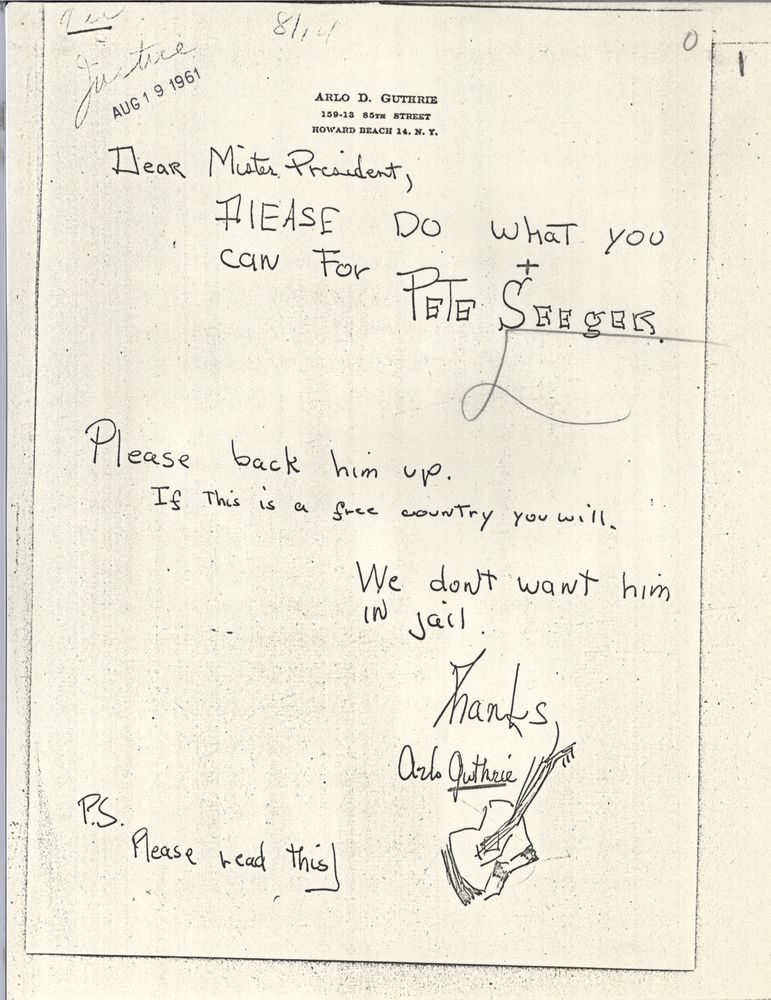 8/14
0
1
Justice
AUG 19 1961
ARLO D. GUTHRIE
159-13 85TH STREET
HOWARD BEACH 14, N. Y.
Dear Mister President,
PlEASE DO WhaT you
can For PETE SEEgER.
Please back him up.
If This is a free counTry you will.
We don't want him
iN jail.
Thanks,
Arlo Guthrie
P.S.
Please read this